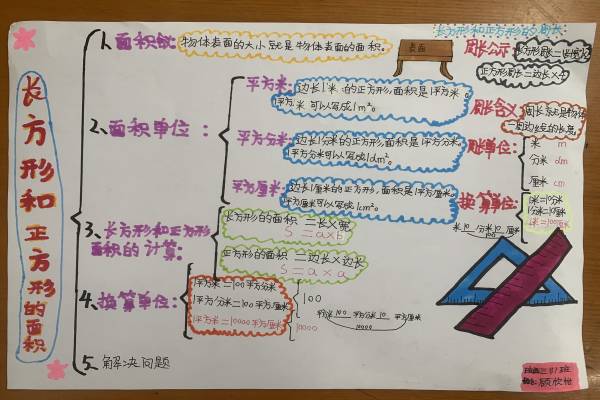 长方形和正方形的面积
长方形和正方形的周长
1.面积的:物体表面的大小就是物体表面的面积。
表面
2、面积单位:
平方米:边长1米的正方形,面积是1平方米。
平方米可以写成1m²。
平方分米:边长1分米的正方形,面积是1平方分米。
平方分米可以写成1dm²。
平方厘米:边长1厘米的正方形,面积是1平方厘米。
平方厘米可以写成1cm²。
3、长方形和正方形
面积的计算:
长方形的面积=长×宽
S=a×b
正方形的面积=边长×边长
S=a×a
4、换算单位:
1平方米=100平方分米
1平方分米=100平方厘米
1平方米=10000平方厘米
100
10000
平方米100平方分米10平方厘米
10000
5、解决问题
周长公示
正方形周长=边长×4
周长含义:
周长就是物体
一周边线的长度。
周长单位:
米 m
分米 dm
厘米 cm
换算单位:
1米=10分米
1分米=10厘米
1米=100厘米
米10分米10厘米
100
班级三(1)班